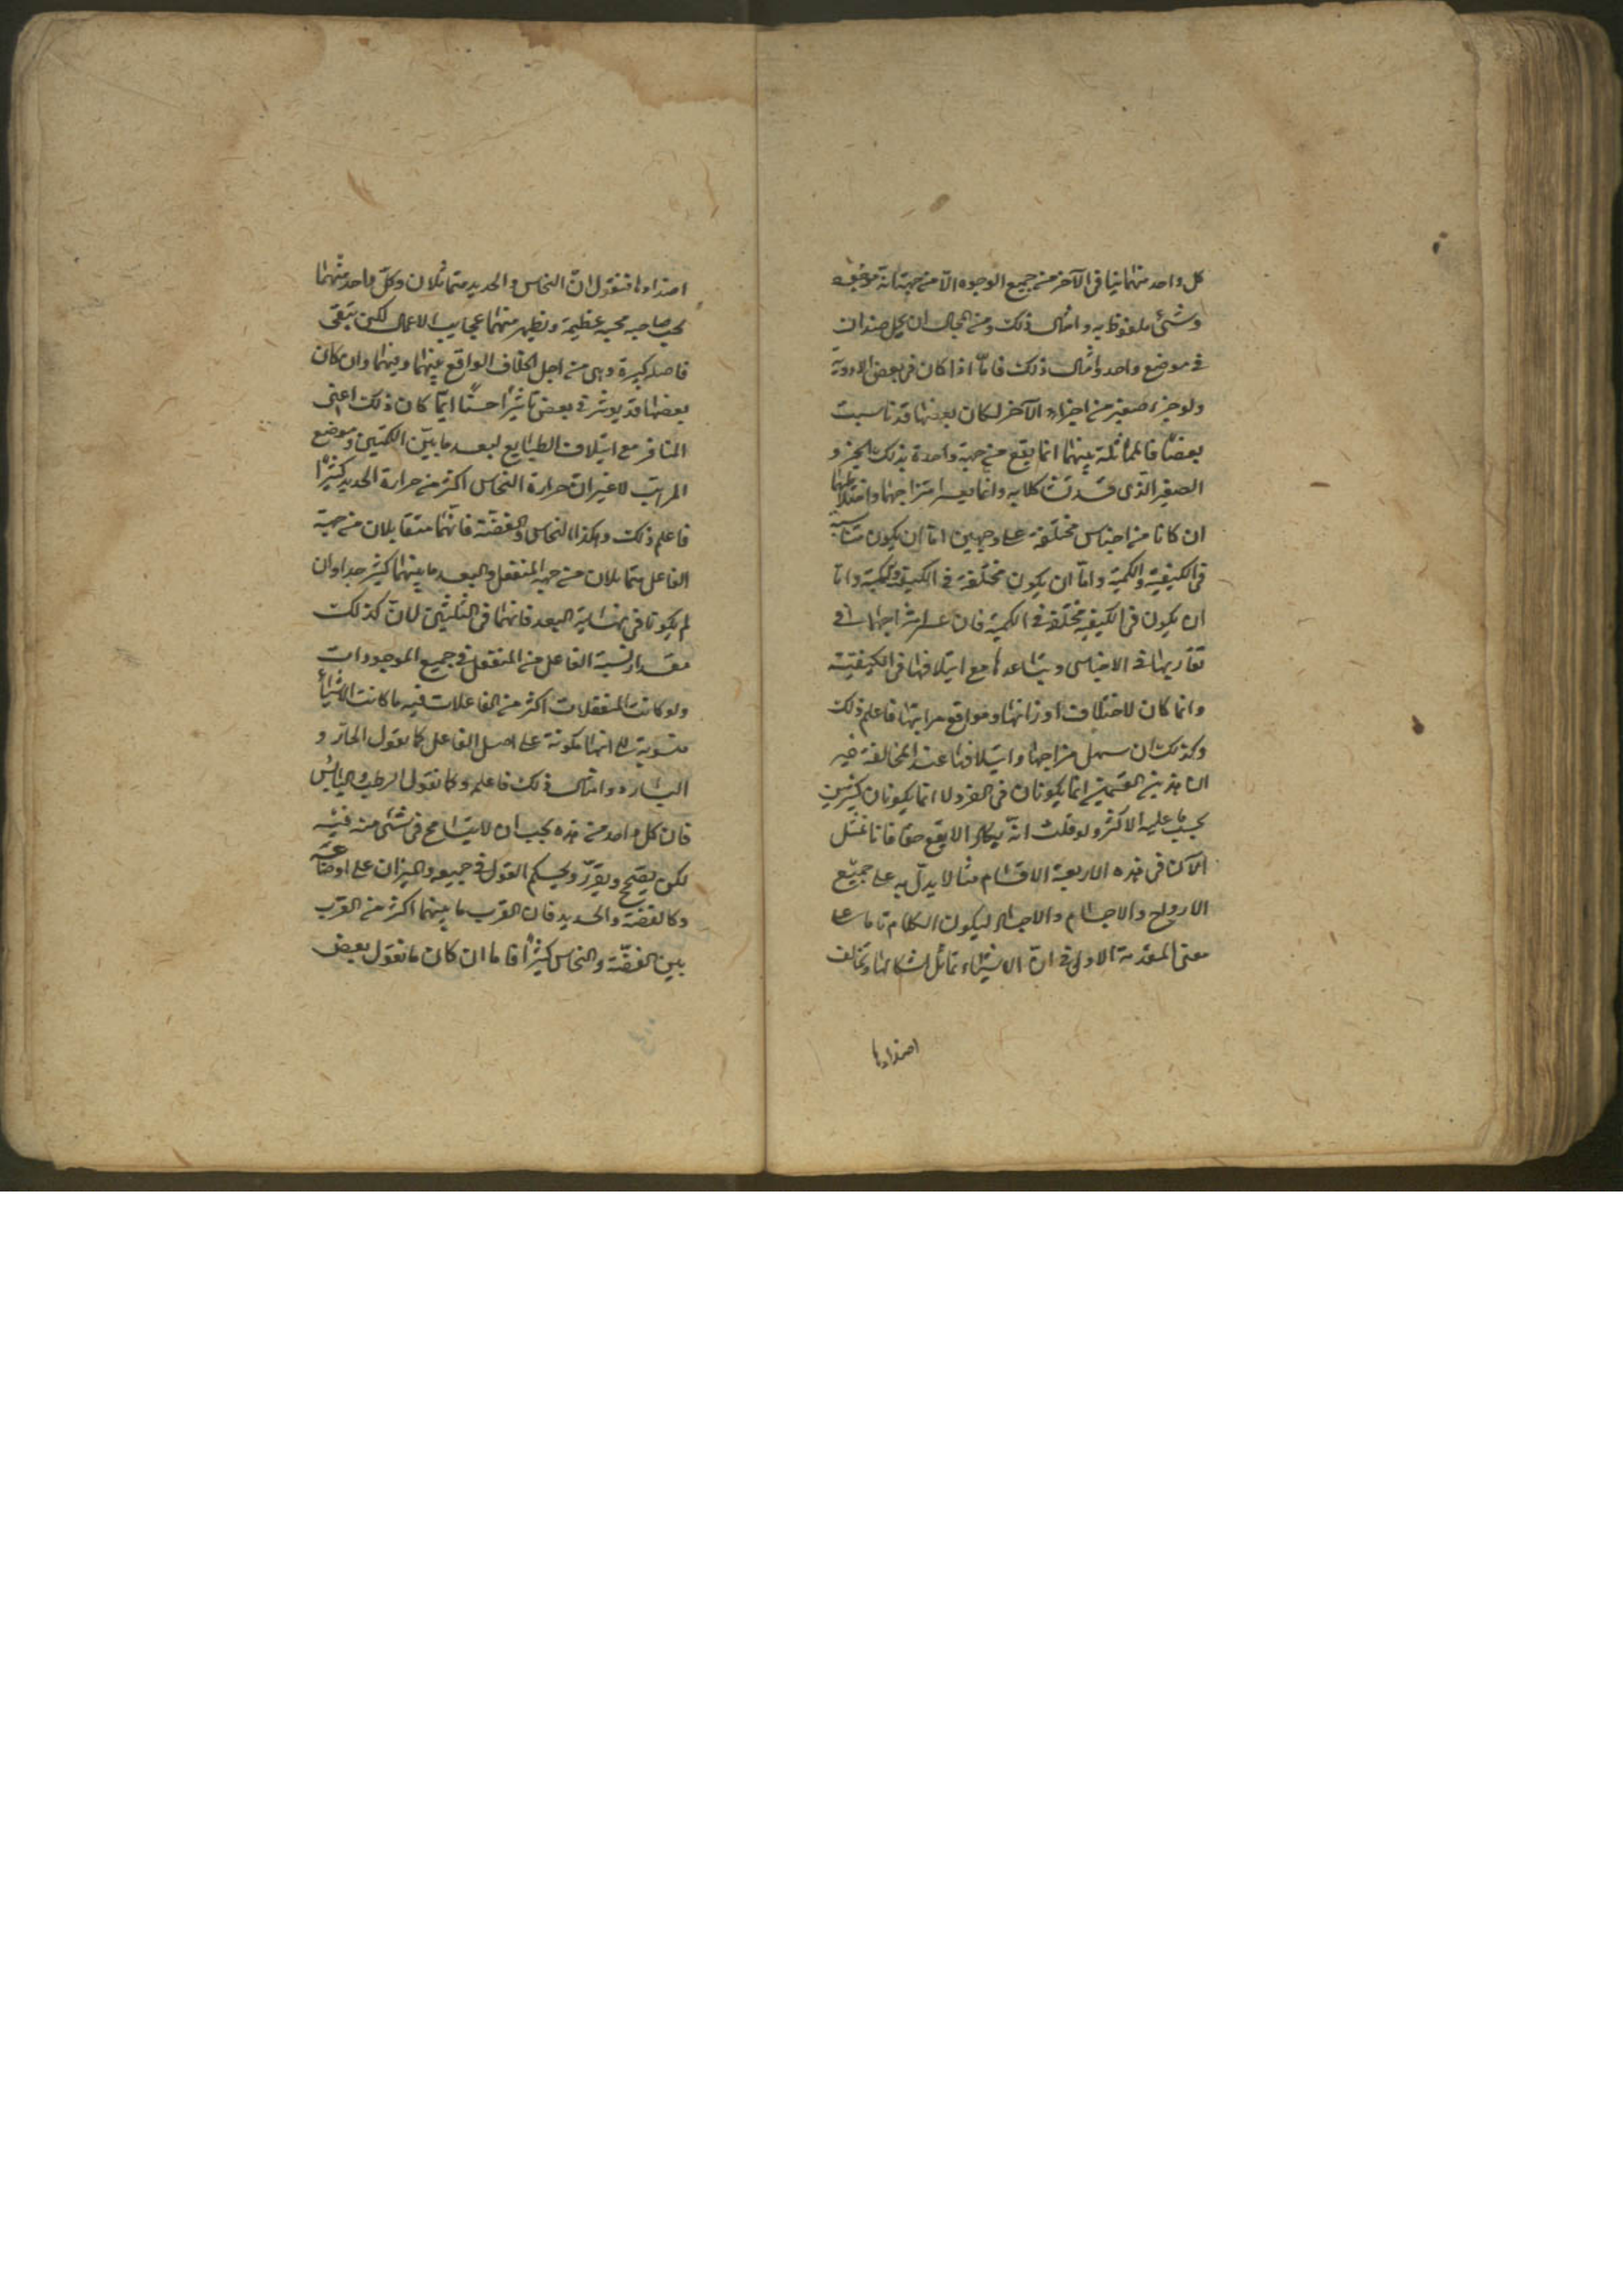 كل واحد منهما ينافى الآخر من جميع الوجوه الا من جهة انه
وشئ ملفوظ به وامثال ذلك ومن المحال ان يحل ضدان
فى موضع واحد وامثال ذلك فانّا اذا كان فى بعض الادوية
ولو جزء صغير من اجزاء الآخر لكان بعضها قد ناسبت
بعضًا فالمماثلة بينهما انما يقع من جهة واحدة بذلك الجزو
الصغير الذى قد تشاكلا به وانما يعسر امتزاجهما واختلاطهما
ان كانا من اجناس مختلفة على وجهين اما ان يكون متناسبة
فى الكيفية والكمية واما ان يكون مختلفة فى الكيفية والكمية واما
ان يكون فى الكيفية مختلفة فى الكمية فان عسر امتزاجهما
تقاربهما فى الاجناس وتباعدها مع ايتلافها فى الكيفية
وانما كان لاختلاف اوزانها ومواقع مراتبها فاعلم ذلك
وكذلك ان سهل مزاجها وايتلافها عند المخالفة غير
ان هذين القسمين انما يكونان فى الفرد لا انما يكونان كثيرين
بحسب ما عليه الاكثر ولو قلت انه يكاد الا يقع حقا فانا نمثل
الآن فى هذه الاربعة الاقسام مثالا يدلّ به على جميع
الارواح والاجسام والاجساد ليكون الكلام تاما على
معنى المقدمة الاولى فى انّ الاشياء تماثل اشكالها وتخالف
اضدادها
اضدادها فنقول ان النحاس والحديد متماثلان وكل واحد منهما
يحب صاحبه محبة عظيمة ويظهر منهما عجايب الاعمال لكن تبقى
فاصلة كبيرة وهى من اجل الخلاف الواقع بينهما وبينهما وان كان
بعضها قد يوثر فى بعض تاثيرًا حسنًا انما كان ذلك اعنى
التنافر مع ايتلاف الطبايع لبعد ما بين الكمّيتين وموضع
المراتب لا غير ان حرارة النحاس اكثر من حرارة الحديد كثيرًا
فاعلم ذلك وهكذا النحاس والفضّة فانّهما متقابلان من جهة
الفاعل متماثلان من جهة المنفعل والبعد ما بينهما كثير جدا وان
لم يكونا فى نهاية البعد فانهما فى الثلثين لانّ كذلك
مقدار نسبة الفاعل من المنفعل فى جميع الموجودات
ولو كانت المنفعلات اكثر من الفاعلات فيه ما كانت الاشياء
منسوبة الى انها مكونة على اصل الفاعل كما نقول الحارّ و
البارد وامثال ذلك فاعلم وكما نقول الرطب واليابس
فان كل واحد من هذه يجب ان لا يتسامح فى شئ منه فيه
لكن يصحّ ويقرّر ويحكم القول فى جميعه والميزان على اوضاعه
وكالفضة والحديد فان القرب ما بينهما اكثر من القرب
بين الفضّة والنحاس كثيرًا فاما ان كان ما نقول بعض